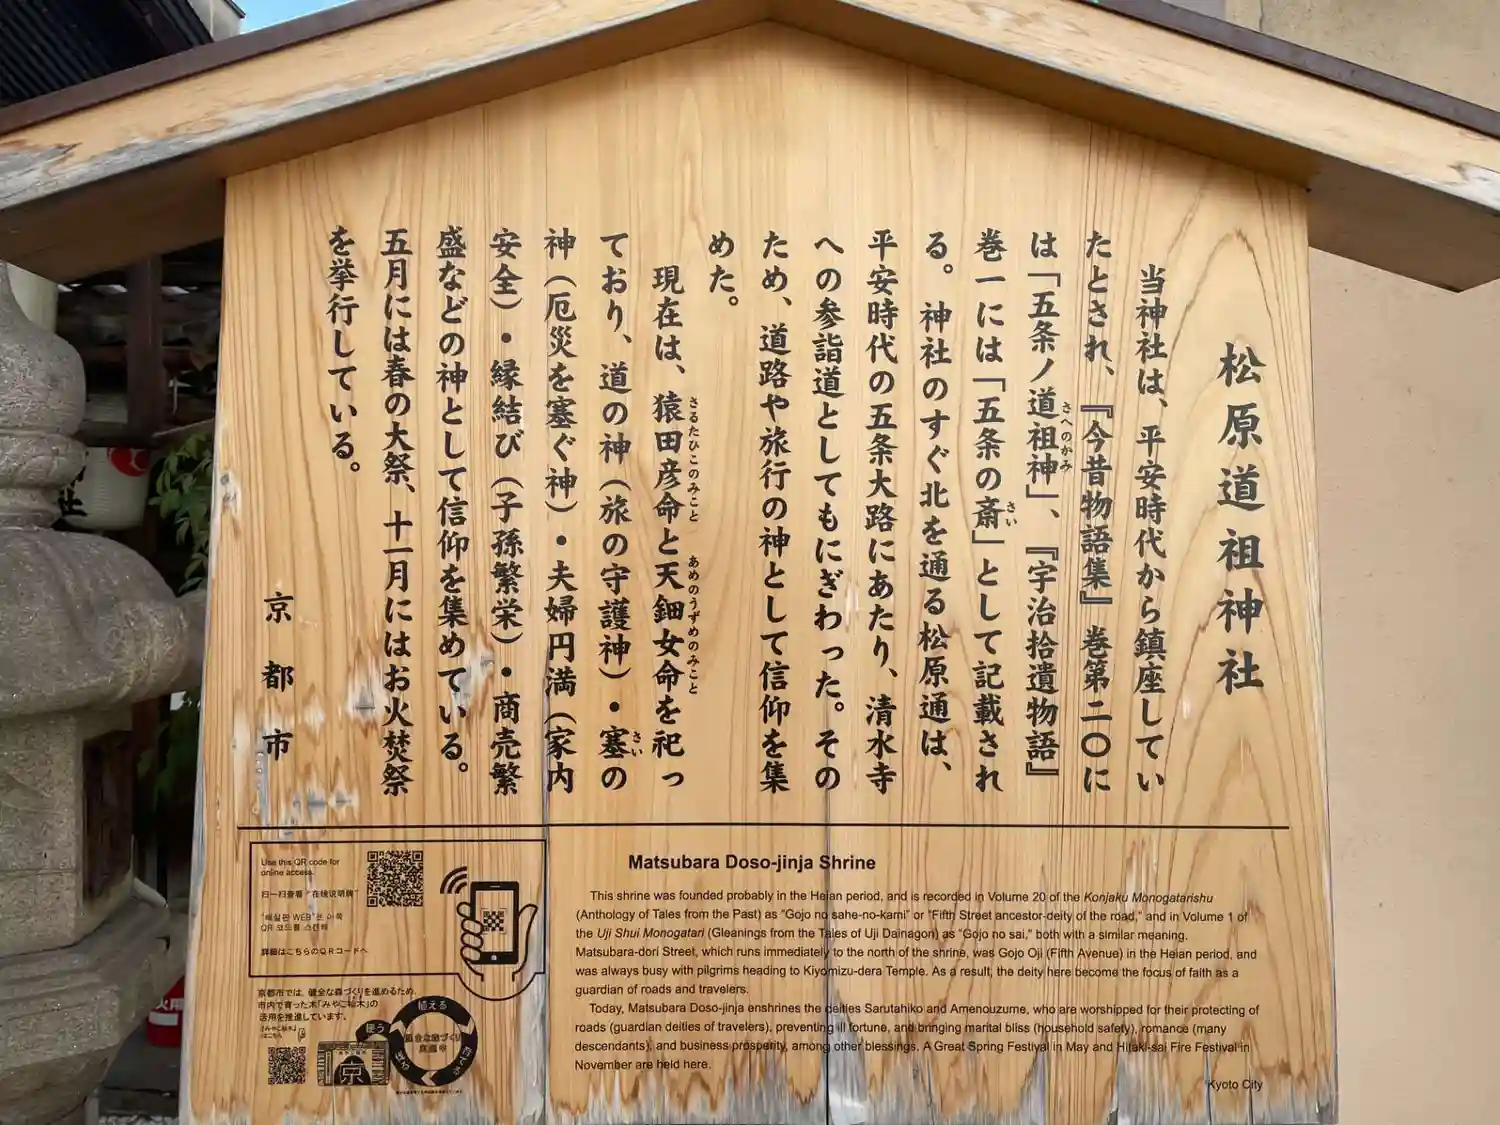 松原道祖神社
当神社は、平安時代から鎮座してい
たとされ、『今昔物語集』巻第二〇に
は「五条ノ道祖神」、『宇治拾遺物語』
さへのかみ
巻一には「五条の斎」として記載され
さい
る。神社のすぐ北を通る松原通は、
平安時代の五条大路にあたり、清水寺
への参詣道としてもにぎわった。その
ため、道路や旅行の神として信仰を集
めた。
現在は、猿田彦命と天鈿女命を祀っ
さるたひこのみこと あめのうずめのみこと
ており、道の神（旅の守護神）・塞の
さい
神（厄災を塞ぐ神）・夫婦円満（家内
安全）・縁結び（子孫繁栄）・商売繁
盛などの神として信仰を集めている。
五月には春の大祭、十一月にはお火焚祭
を挙行している。
京都市
Use this QR code for
online access.
扫一扫查看“在线说明牌”
QR 코드를 스캔해
詳細はこちらのＱＲコードへ
京都市では、健全な森づくりを進めるため、
市内で育った木「みやこ杣木」の
活用を推進しています。
植える
使う
京
Matsubara Doso-jinja Shrine
This shrine was founded probably in the Heian period, and is recorded in Volume 20 of the Konjaku Monogatarishu
(Anthology of Tales from the Past) as "Gojo no sahe-no-kami" or "Fifth Street ancestor-deity of the road," and in Volume 1 of
the Uji Shui Monogatari (Gleanings from the Tales of Uji Dainagon) as "Gojo no sai," both with a similar meaning.
Matsubara-dori Street, which runs immediately to the north of the shrine, was Gojo Oji (Fifth Avenue) in the Heian period, and
was always busy with pilgrims heading to Kiyomizu-dera Temple. As a result, the deity here become the focus of faith as a
guardian of roads and travelers.
Today, Matsubara Doso-jinja enshrines the deities Sarutahiko and Amenouzume, who are worshipped for their protecting of
roads (guardian deities of travelers), preventing ill fortune, and bringing marital bliss (household safety), romance (many
descendants), and business prosperity, among other blessings. A Great Spring Festival in May and Hitaki-sai Fire Festival in
November are held here.
Kyoto City